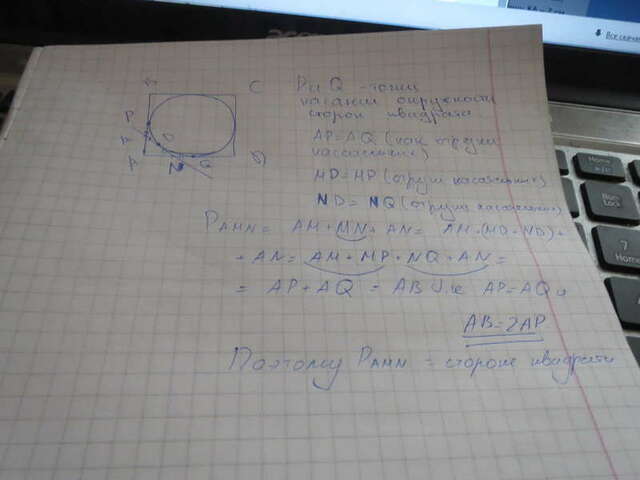 acer
Все скачан
Home
7
Home
C
P и Q - точки
касания окружности
сторон квадрата
P
AP=AQ (как отрезки
касательных)
MD=MP (отрезки касательных)
A
N
Q
ND=NQ (отрезки касательных)
PAMN = AM+MN+AN= AM+(MD+ND)+
+ AN= AM+MP+NQ+AN=
= AP+AQ = AB т.к. AP=AQ а
AB=2AP
Поэтому PAMN = стороне квадрата